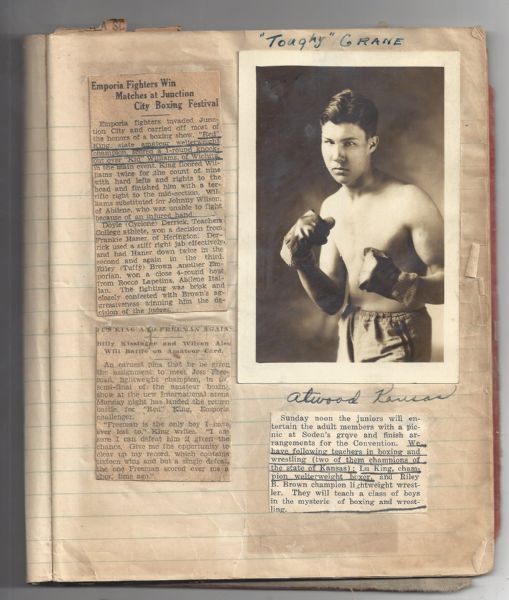 "Toughy" CRANE
Emporia Fighters Win
Matches at Junction
City Boxing Festival
Emporia fighters invaded Junc-
tion City and carried off most of
the honors of a boxing show. "Red"
King, state amateur welterweight
champion, scored a 1-round knock-
out over "Kid" Williams, of Wichita,
in the main event. King floored Wil-
liams twice for the count of nine
with hard lefts and rights to the
head and finished him with a ter-
rific right to the mid-section. Wil-
liams substituted for Johnny Wilson,
of Abilene, who was unable to fight
because of an injured hand.
Doyle (Cyclone) Derrick, Teachers
College athlete, won a decision from
Frankie Haner, of Herington. Der-
rick used a stiff right jab effectively,
and had Haner down twice in the
second and again in the third.
Riley (Tuffy) Brown Another Em-
porian, won a close 4-round bout
from Rocco Lapetina, Abilene Ital-
ian. The fighting was brisk and
closely contested with Brown's ag-
gressiveness winning him the de-
cision of the judges.
IT'S KING AND FREEMAN AGAIN
Billy Kissinger and Wilson Also
Will Battle on Amateur Card.
An earnest plea that he be given
the assignment to meet Jess Free-
man, lightweight champion, in the
semi-final of the amateur boxing
show at the new International arena
Monday night has landed the return
battle for "Red" King, Emporia
challenger.
"Freeman is the only boy I have
ever lost to," King writes. "I am
sure I can defeat him if given the
chance. Give me the opportunity to
clear up my record, which contains
sixteen wins and but a single defeat,
the one Freeman scored over me a
short time ago."
Atwood Kansas
Sunday noon the juniors will en-
tertain the adult members with a pic-
nic at Soden's grove and finish ar-
rangements for the Convention. We
have following teachers in boxing and
wrestling (two of them champions of
the state of Kansas): Lu King, cham-
pion welterweight boxer, and Riley
B. Brown champion lightweight wrest-
ler. They will teach a class of boys
in the mysterie of boxing and wrest-
ling.